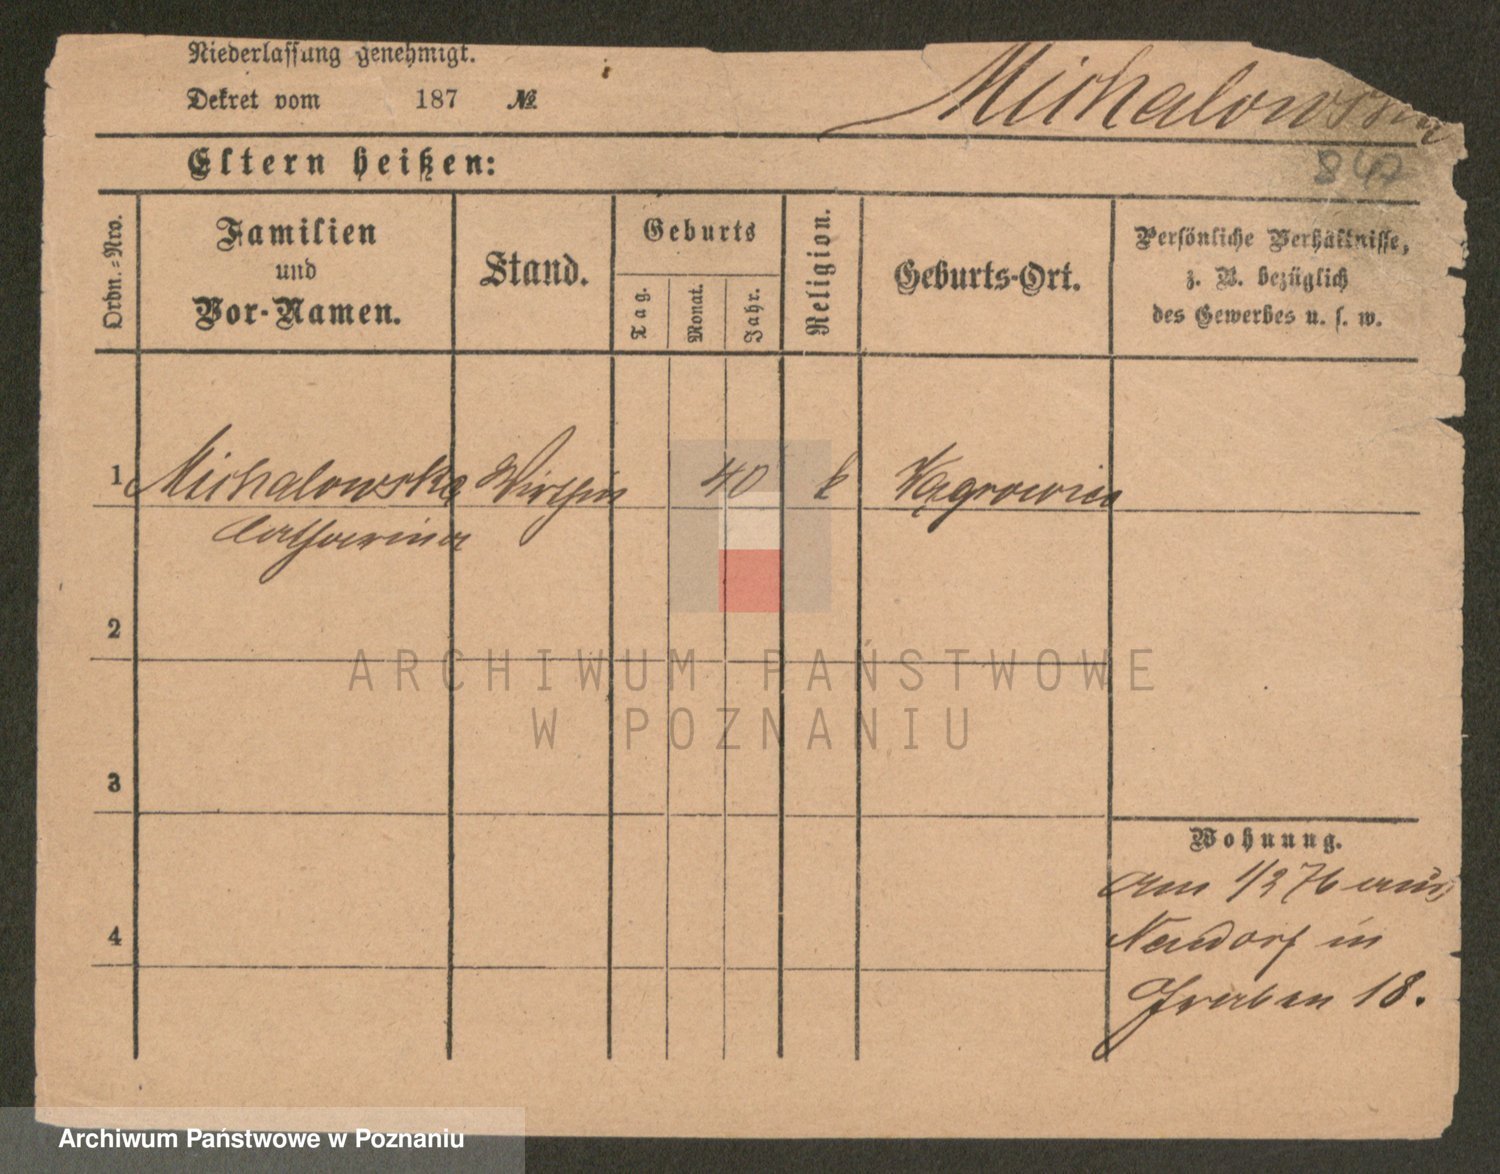 Niederlassung genehmigt.
Dekret vom 187 №
Michalowska
847
Eltern heißen:
Ordn.=Nro.
Familien
und
Vor-Namen.
Stand.
Geburts
Tag.
Monat.
Jahr.
Religion.
Geburts-Ort.
Persönliche Verhältnisse,
z. B. bezüglich
des Gewerbes u. s. w.
1 Michalowska Wirthin 40 k Wągrowiec
Catharina
2
3
4
Wohnung.
am 1/3 76 aus
Neudorf in
Graben 18.
ARCHIWUM PAŃSTWOWE
W POZNANIU
Archiwum Państwowe w Poznaniu